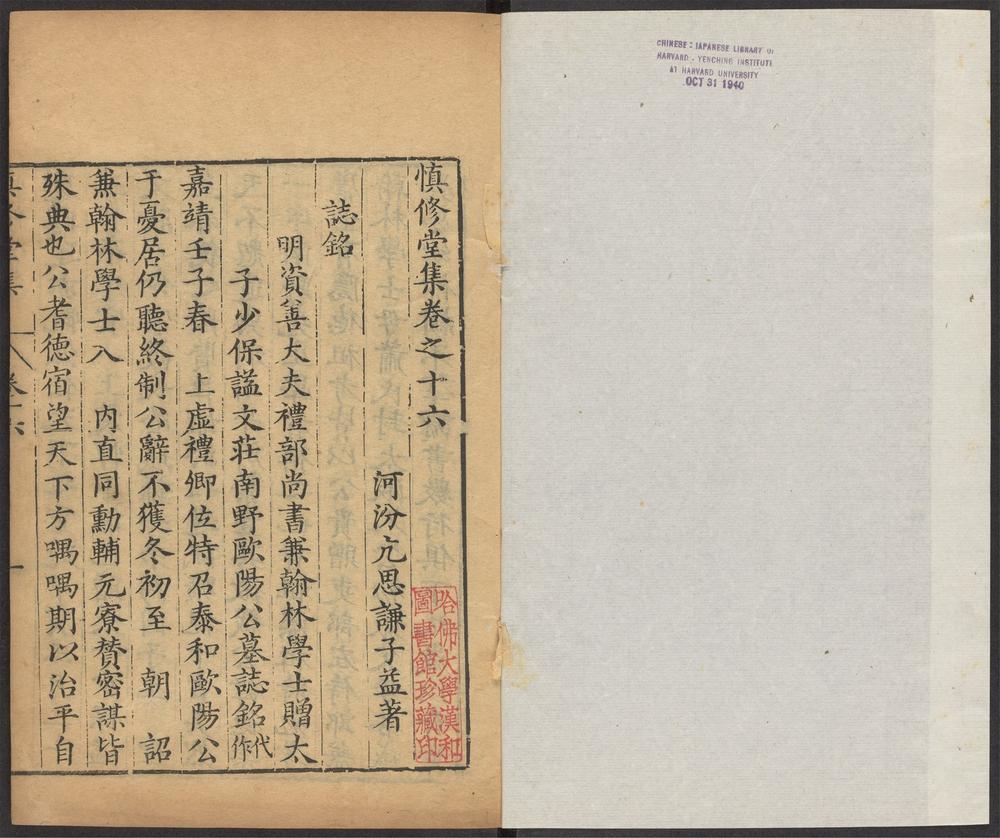 CHINESE - JAPANESE LIBRARY OF
HARVARD - YENCHING INSTITUTE
AT HARVARD UNIVERSITY
OCT 31 1940
慎修堂集卷之十六
河汾亢思謙子益著
誌銘
明資善大夫禮部尚書兼翰林學士贈太
子少保謚文莊南野歐陽公墓誌銘代作
嘉靖壬子春 上虛禮卿位特召泰和歐陽公
于憂居仍聽終制公辭不獲冬初至 朝 詔
兼翰林學士入 內直同勳輔元寮賛密謀皆
殊典也公耆德宿望天下方喁喁期以治平自
哈佛大學漢和
圖書館珍藏印